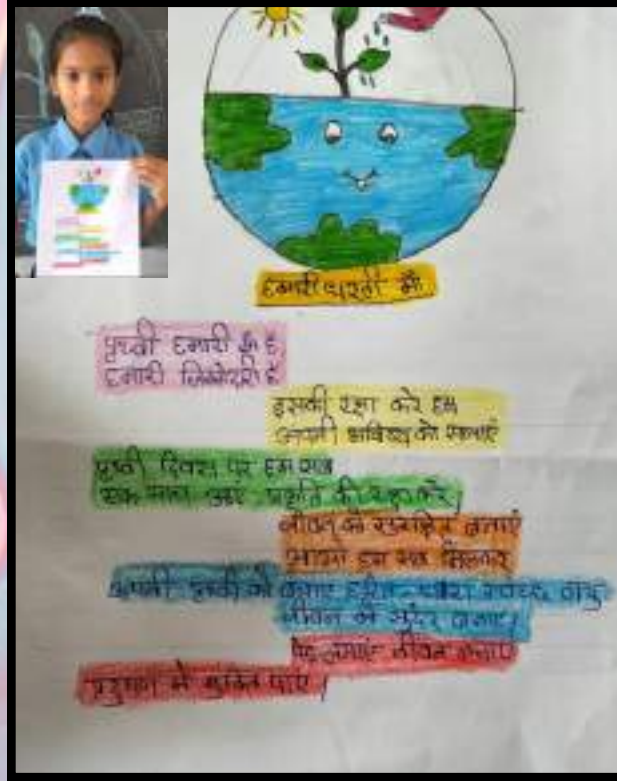 हमारी धरती माँ
पृथ्वी हमारी माँ है
हमारी जिम्मेदारी है
इसकी रक्षा करे हम
अपनी भविष्य को सजाएं
पृथ्वी दिवस पर हम सब
एक साथ आएं प्रकृति की रक्षा करे।
जीवन को सुरक्षित बनाएं
आओ हम सब मिलकर
अपनी पृथ्वी को बनाए हरित स्वच्छ वायु
जीवन को सुंदर बनाएं।
पेड़ लगाएं जीवन बचाएं
प्रदूषण से मुक्ति पाएं।